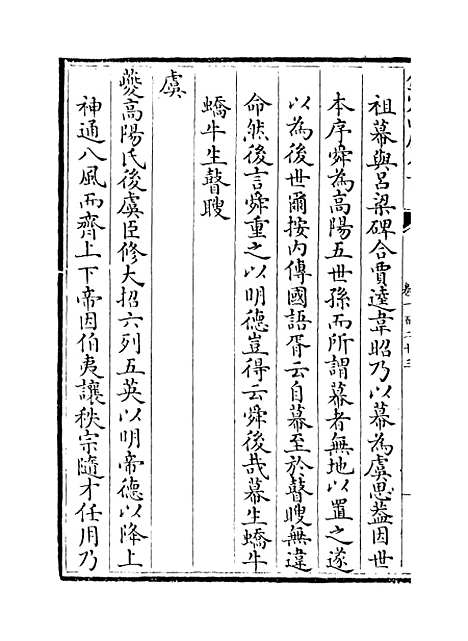 卷一百二十三
祖幕與呂梁碑合賈逵韋昭乃以幕為虞思蓋因世
本序舜為高陽五世孫而所謂幕者無地以置之遂
以為後世爾按内傳國語胥云自幕至於瞽瞍無違
命然後言舜重之以明德豈得云舜後哉幕生蟜牛
蟜牛生瞽瞍
虞
夔高陽氏後虞臣修大招六列五英以明帝德以降上
神通八風而齊上下帝因伯夷讓秩宗隨才任用乃